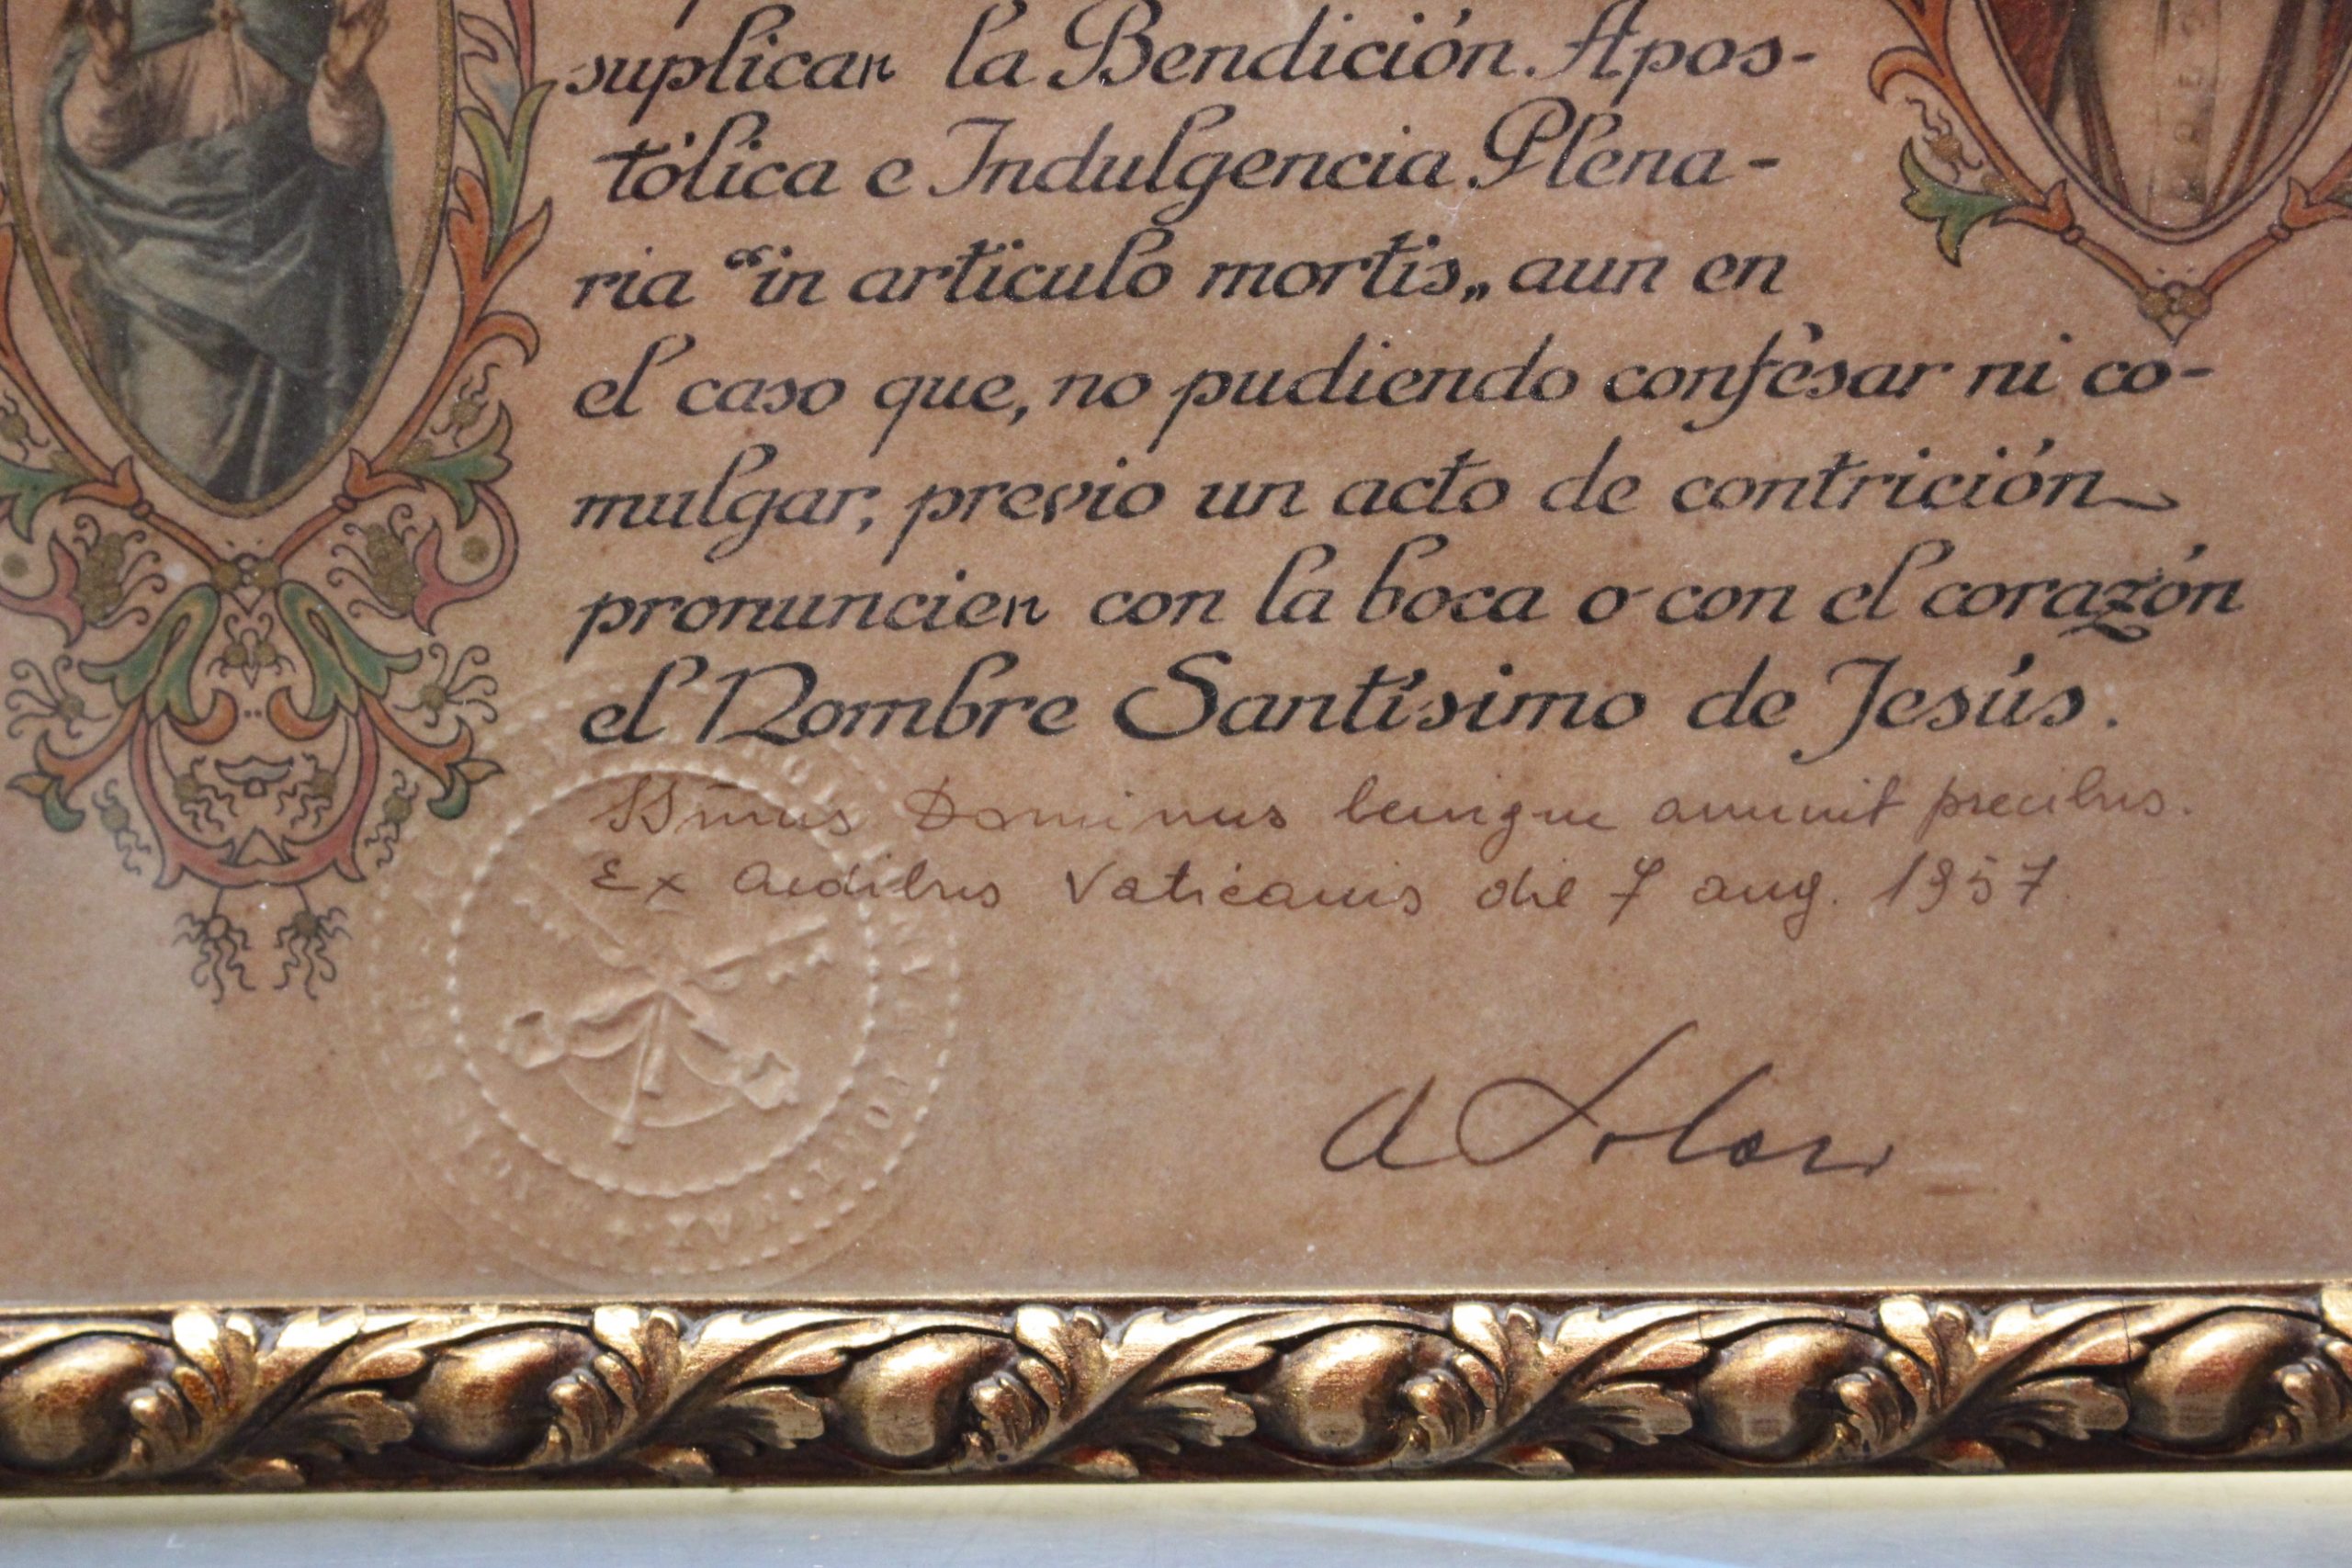 suplican la Bendición Apos-
tólica e Indulgencia Plena-
ria “in artículo mortis„ aun en
el caso que, no pudiendo confesar ni co-
mulgar, previo un acto de contrición
pronuncien con la boca o con el corazón
el Nombre Santísimo de Jesús.
SSmus Dominus benigne annuit precibus.
Ex Aedibus Vaticanis die 7 aug. 1957